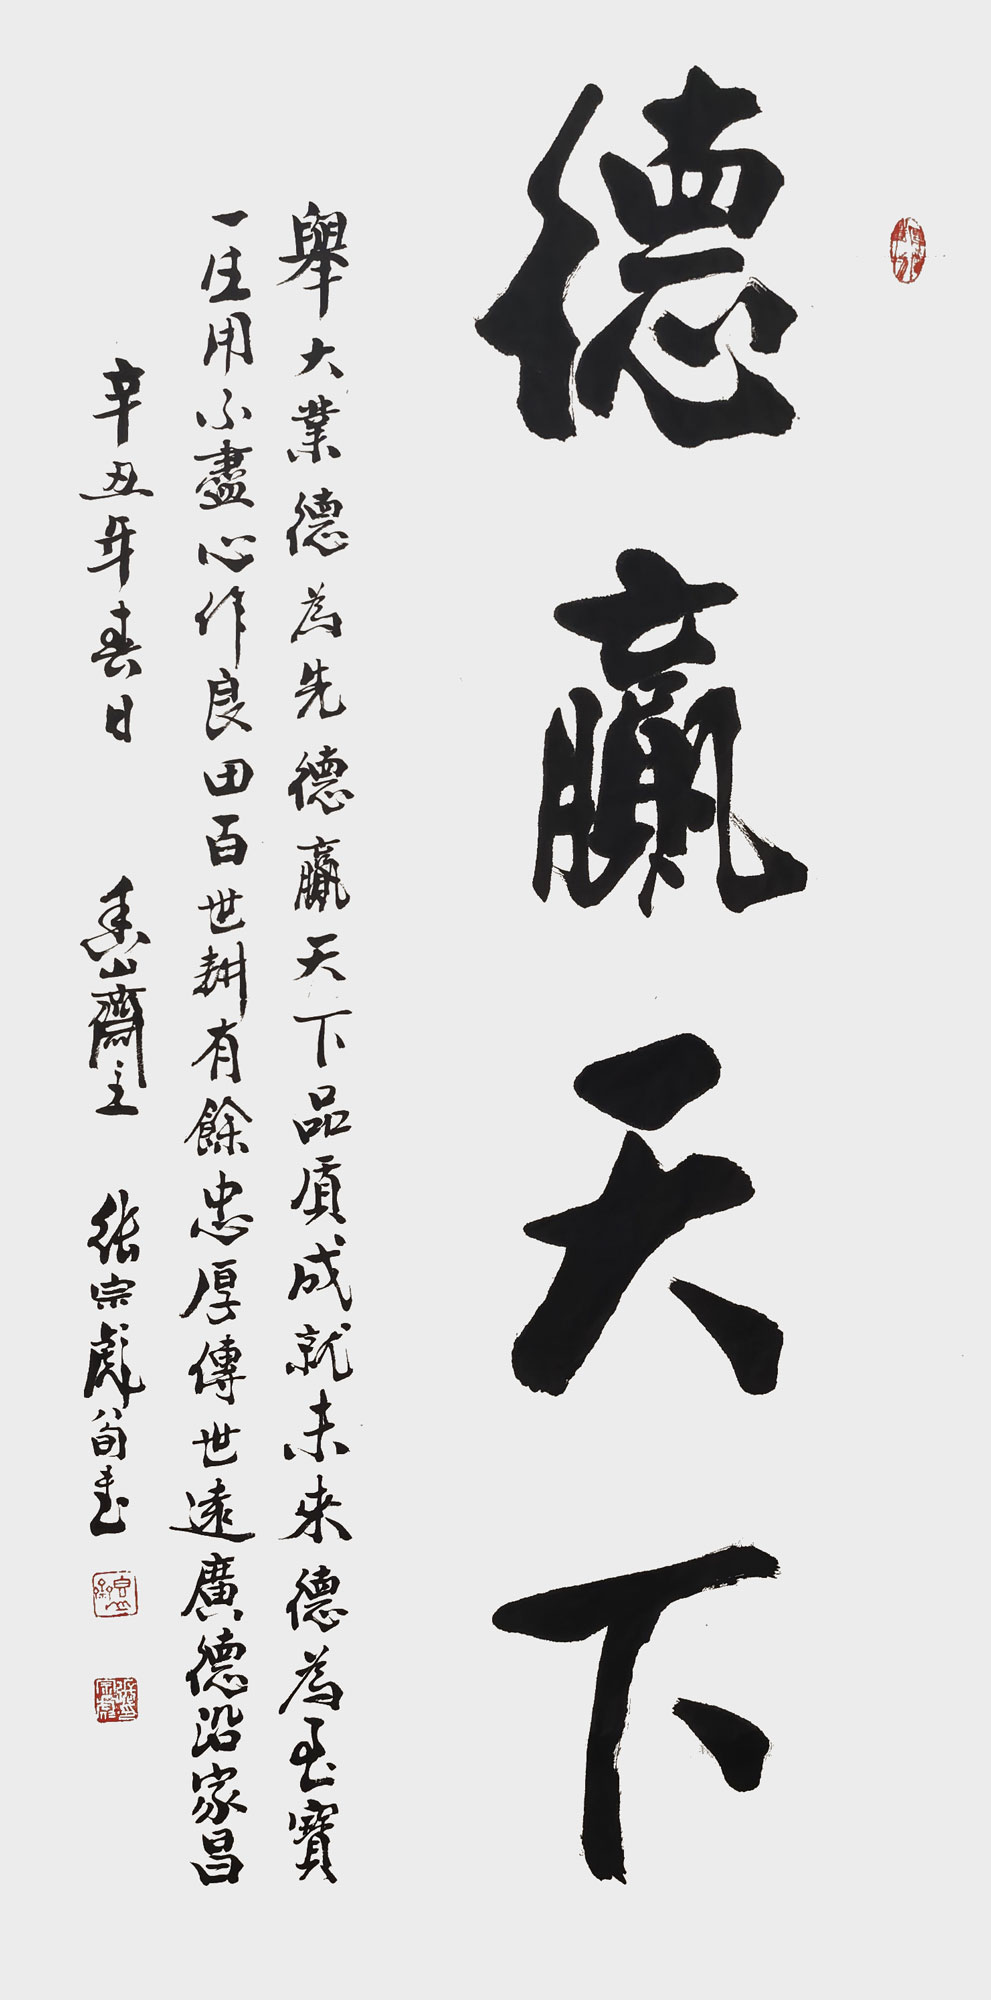 德贏天下
舉大業德為先德贏天下品質成就未來德為至寶
一生用不盡心作良田百世耕有餘忠厚傳世遠廣德沿家昌
辛丑年春日 山齋主 張宗彪 書